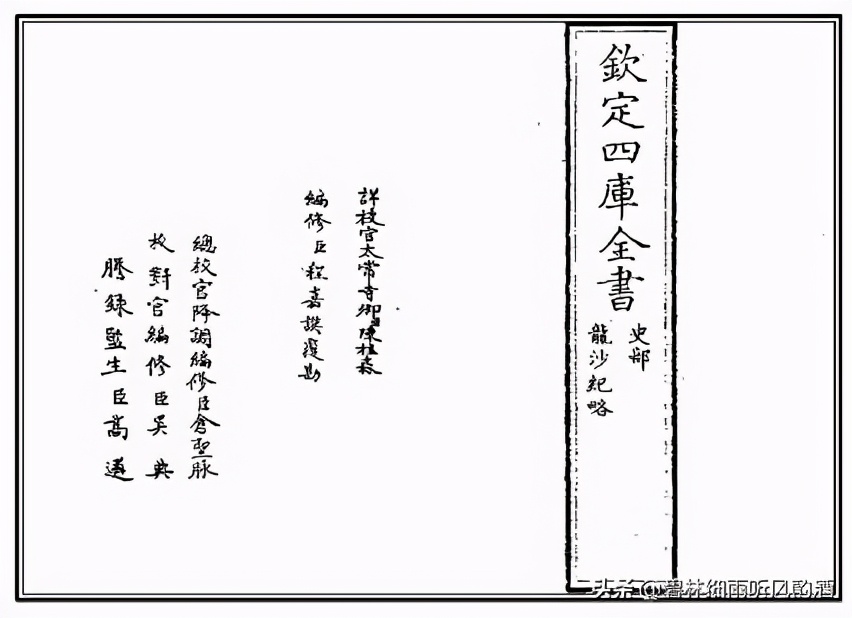 欽定四庫全書
史部
龍沙紀略
詳校官太常寺卿臣陳桂森
編修臣程嘉謨覆勘
總校官降調編修臣倉聖脉
校對官編修臣吳典
謄錄監生臣高
头条 @書林细雨听风